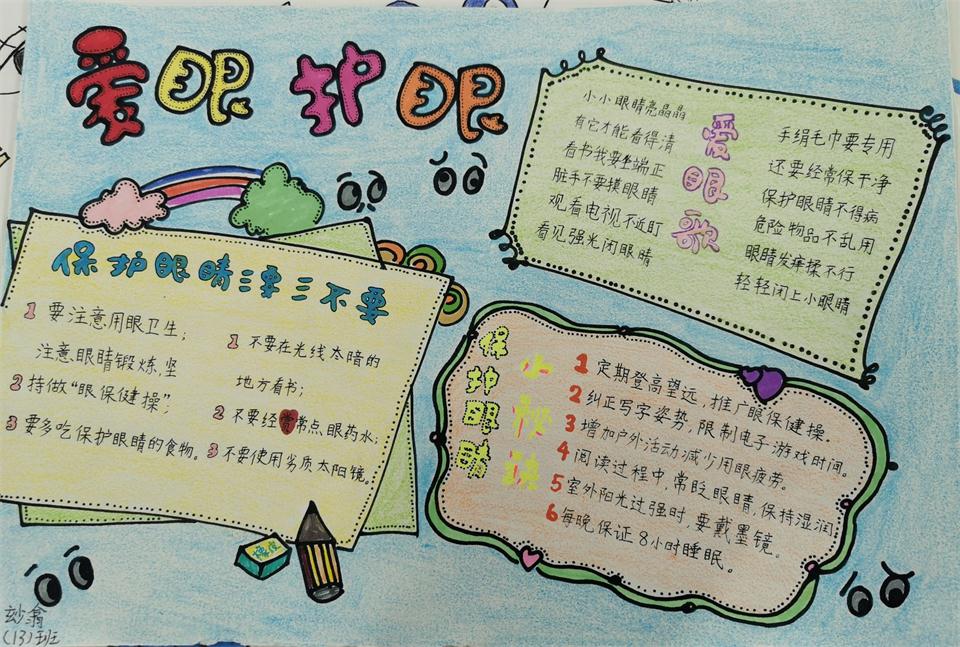 爱眼护眼
爱眼歌
小小眼睛亮晶晶
有它才能看得清
看书我要坐端正
脏手不要摸眼睛
观看电视不近盯
看见强光闭眼睛
手绢毛巾要专用
还要经常保干净
保护眼睛不得病
危险物品不乱用
眼睛发痒揉不行
轻轻闭上小眼睛
保护眼睛三要三不要
1 要注意用眼卫生；
注意眼睛锻炼，坚
2 持做“眼保健操”；
3 要多吃保护眼睛的食物。
1 不要在光线太暗的
地方看书；
2 不要经常点眼药水；
3 不要使用劣质太阳镜。
保护眼睛
小秘
1 定期登高望远，推广眼保健操。
2 纠正写字姿势，限制电子游戏时间。
3 增加户外活动减少用眼疲劳。
4 阅读过程中，常眨眼睛，保持湿润；
5 室外阳光过强时，要戴墨镜。
6 每晚保证8小时睡眠。
(13)班